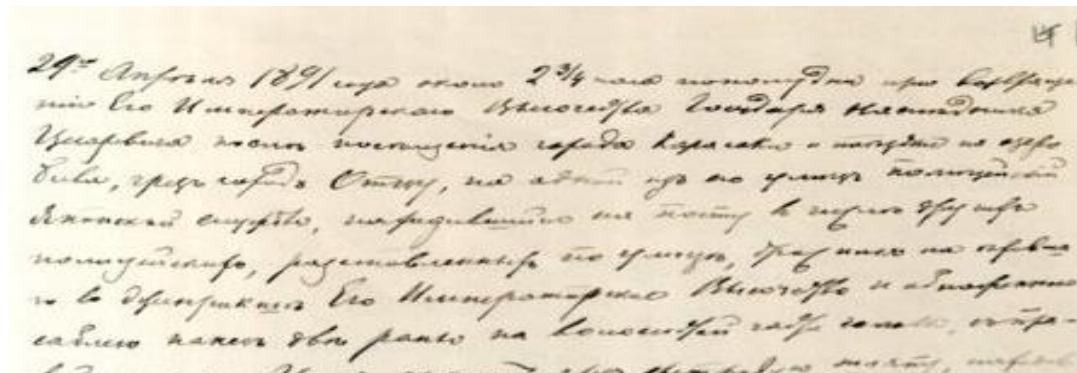 29го Апрѣля 1891 года около 2 3/4 часа пополудни при возвраще-
ніи Его Императорскаго Высочества Государя Наслѣдника
Цесаревича послѣ посѣщенія города Карасаки и поѣздки по озеру
Бива, чрезъ городъ Отцу, на одной изъ его улицъ полицейскій
Японской службы, находившійся на посту въ числѣ другихъ
полицейскихъ, разставленныхъ по улицѣ, на
въ Его Императорское Высочество и обнаженною
саблею нанесъ двѣ раны на волосистой части головы,